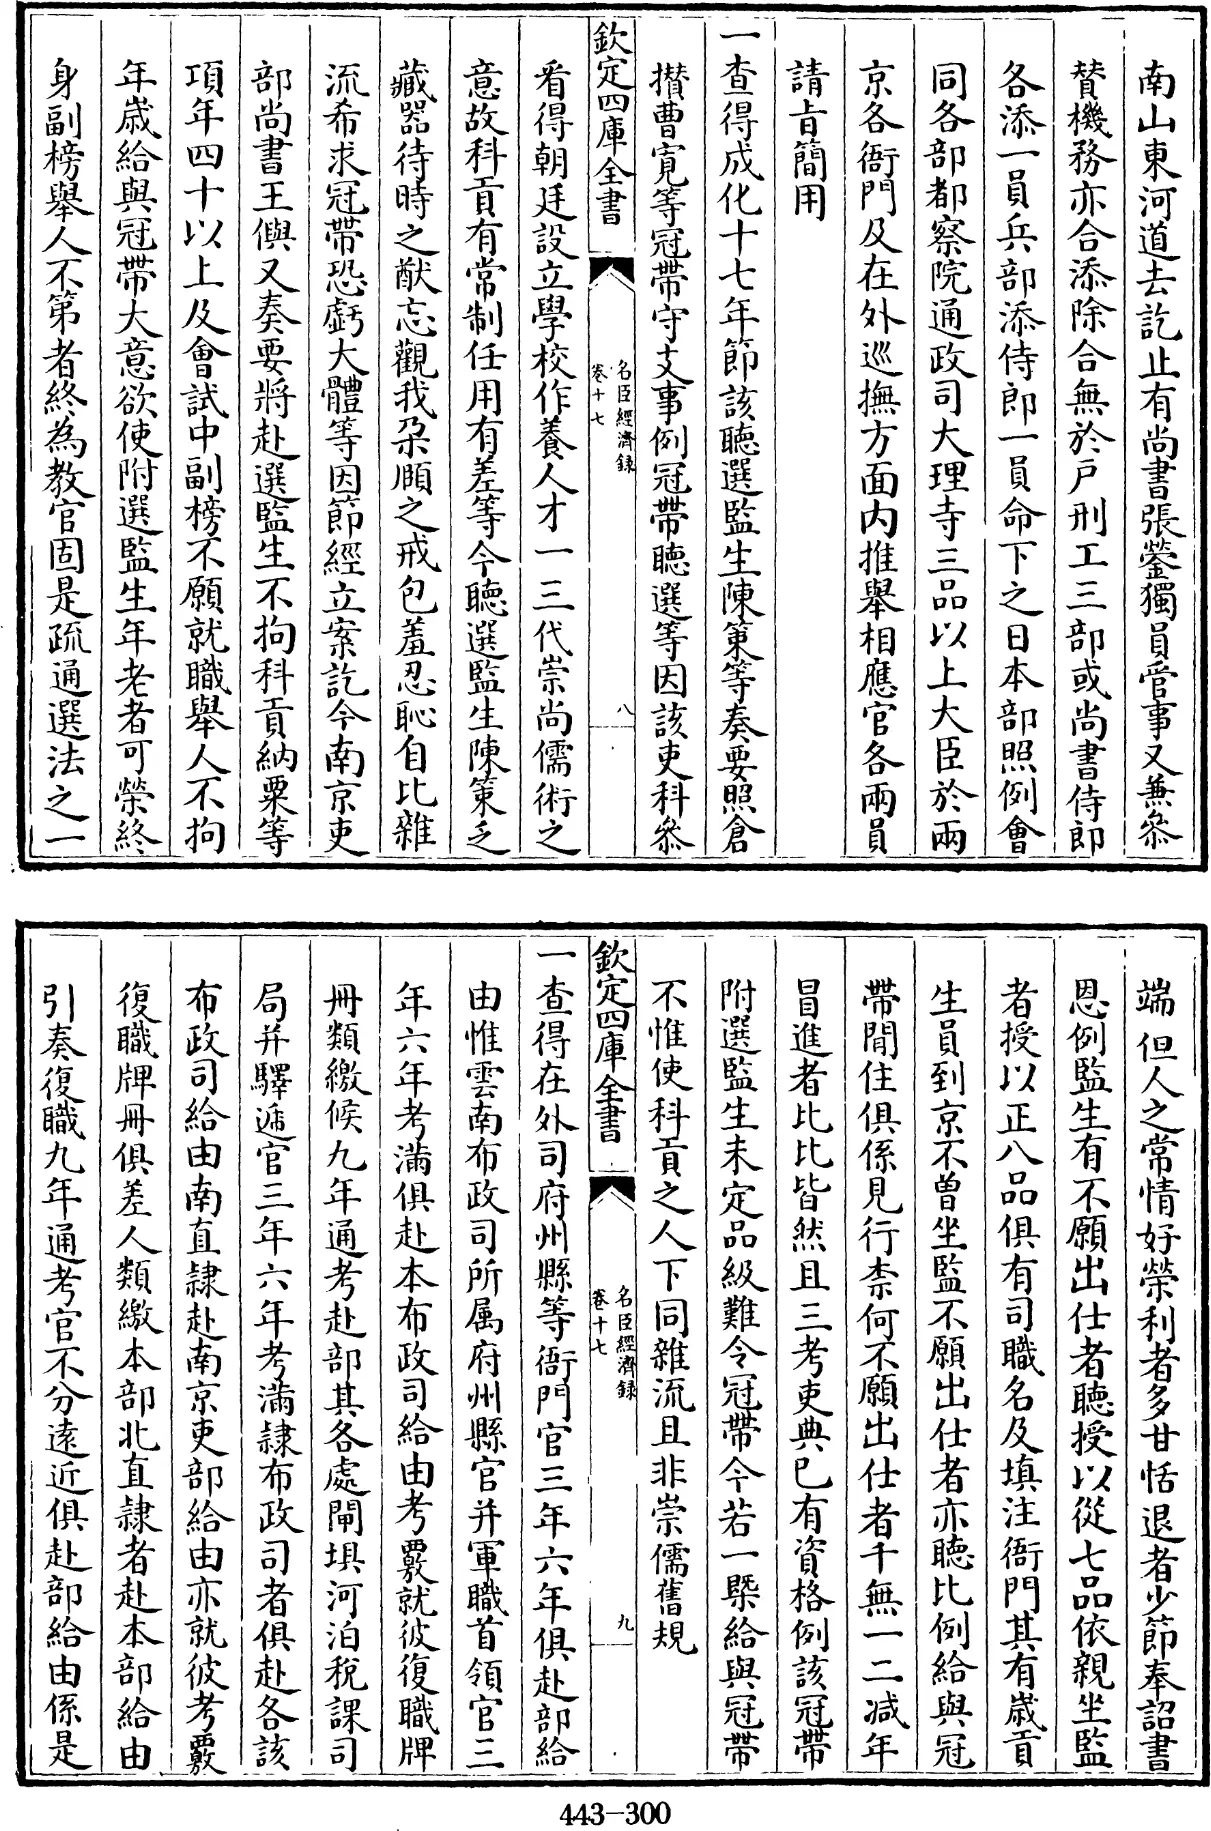 南山東河道去訖止有尚書張鎣獨員管事又兼叅
賛機務亦合添除合無於戸刑工三部或尚書侍郎
各添一員兵部添侍郎一員命下之日本部照例會
同各部都察院通政司大理寺三品以上大臣於兩
京各衙門及在外巡撫方面内推舉相應官各兩員
請㫖簡用
一查得成化十七年節該聽選監生陳䇿等奏要照倉
攅曹寛等冠帶守支事例冠帶聽選等因該吏科叅
欽定四庫全書
名臣經濟録
卷十七
八
看得朝廷設立學校作養人才一三代崇尚儒術之
意故科貢有常制任用有差等今聽選監生陳䇿乏
藏器待時之猷忘觀我朶頤之戒包羞忍恥自比雜
流希求冠帶恐虧大體等因節經立案訖今南京吏
部尚書王㒜又奏要將赴選監生不拘科貢納粟等
項年四十以上及會試中副榜不願就職舉人不拘
年歲給與冠帶大意欲使附選監生年老者可榮終
身副榜舉人不第者終為教官固是疏通選法之一
端但人之常情好榮利者多甘恬退者少節奉詔書
恩例監生有不願出仕者聽授以從七品依親坐監
者授以正八品俱有司職名及填注衙門其有歲貢
生員到京不曽坐監不願出仕者亦聽比例給與冠
帶閒住俱係見行柰何不願出仕者千無一二減年
冒進者比比皆然且三考吏典已有資格例該冠帶
附選監生未定品級難令冠帶今若一槩給與冠帶
不惟使科貢之人下同雜流且非崇儒舊規
欽定四庫全書
名臣經濟録
卷十七
九
一查得在外司府州縣等衙門官三年六年俱赴部給
由惟雲南布政司所属府州縣官并軍職首領官三
年六年考滿俱赴本布政司給由考覈就彼復職牌
冊類繳候九年通考赴部其各處閘垻河泊稅課司
局并驛逓官三年六年考滿隷布政司者俱赴各該
布政司給由南直隷赴南京吏部給由亦就彼考覈
復職牌冊俱差人類繳本部北直隷者赴本部給由
引奏復職九年通考官不分逺近俱赴部給由係是
443-300